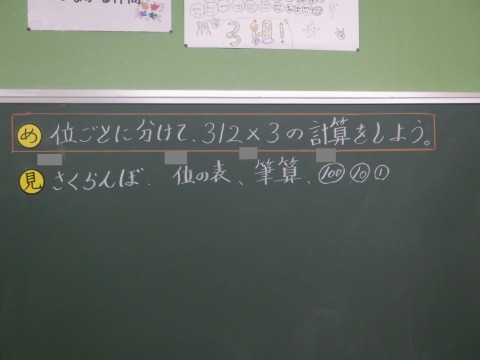 3組!
め 位ごとに分けて、312×3の計算をしよう。
見 さくらんぼ、位の表、筆算、100 10 1